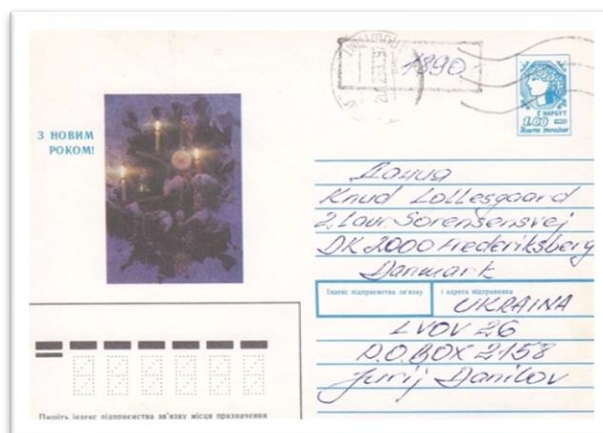 1890
Г. НАРБУТ
1.00
Пошта України
З НОВИМ
РОКОМ!
Данія
Knud Lollesgaard
2. Laur Sorensensvej
DK 2000 Frederiksberg
Danmark
Індекс підприємства зв'язку
і адреса відправника
UKRAINA
LVOV 26
P.O.BOX 2158
Jurij Danilov
Пишіть індекс підприємства зв'язку місця призначення